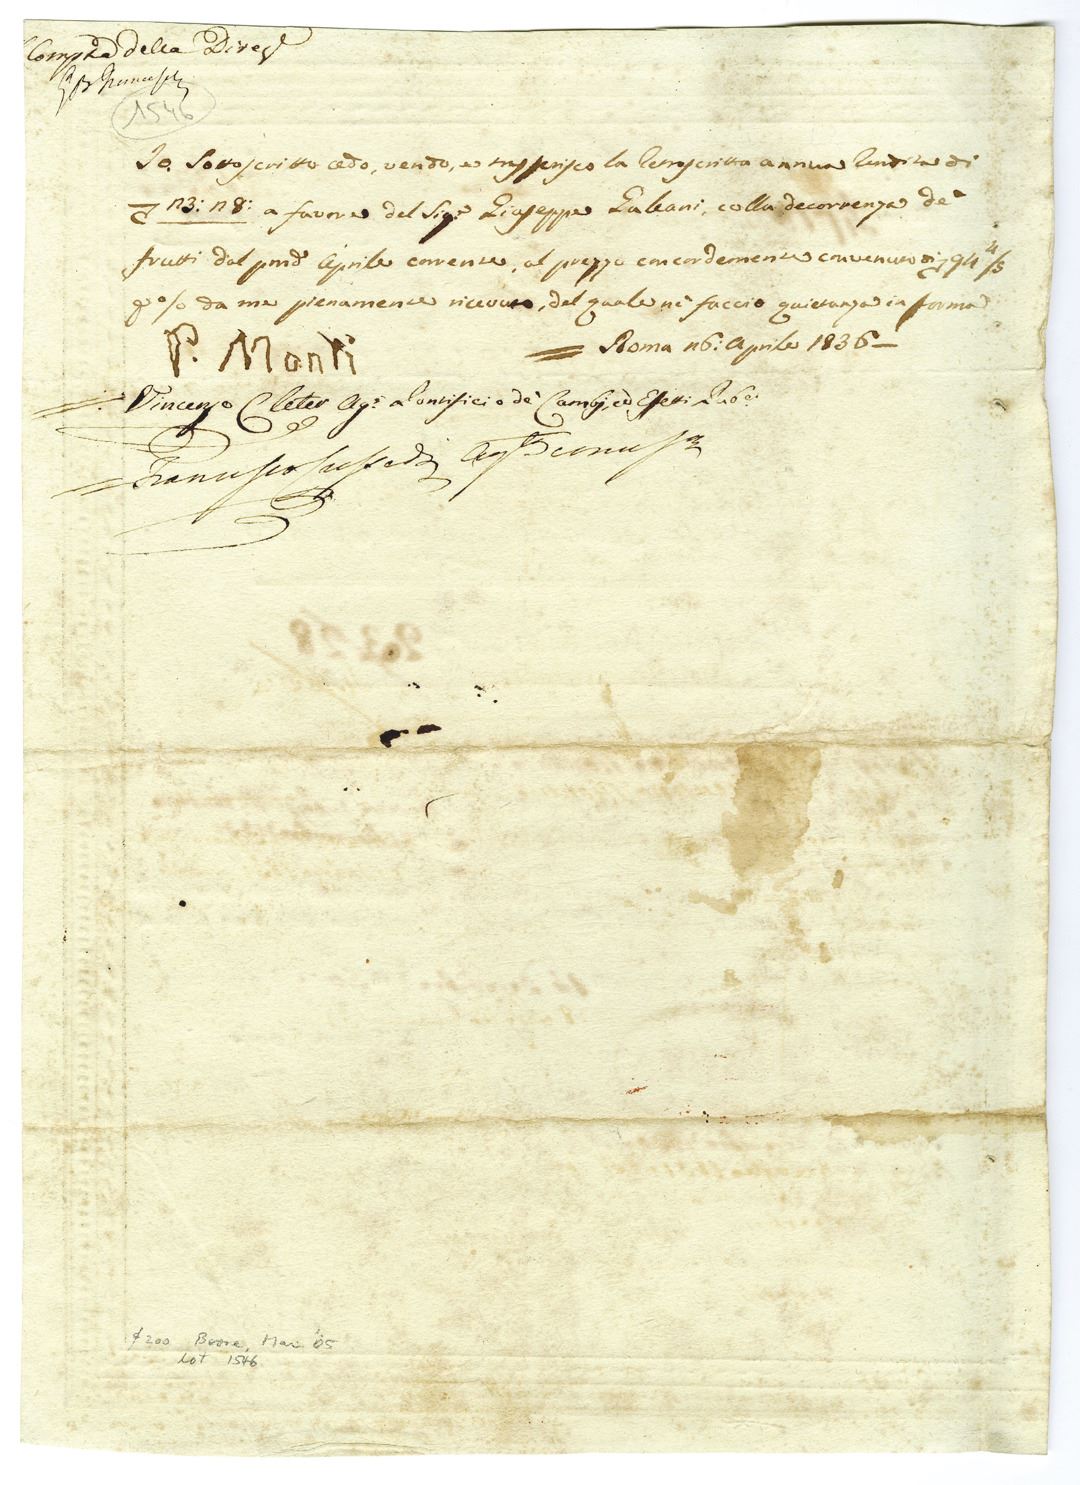 Comp.ta della Direz.e
1546
Io Sottoscritto cedo, vendo, e trasferisco la retroscritta annua rendita di
n3: n8: a favore del Sig.r Giuseppe Galeani, colla decorrenza de'
frutti dal pmo Aprile corrente, al prezzo concordemente convenuto di 94 4/5
p% da me pienamente ricevuto, del quale ne faccio quietanza in forma
Roma n6: Aprile 1836
P. Monti
Vincenzo Cleter Ag.e Pontificio de' Cambj, ed Effetti Pub.ci
Francesco
$200 Boone, Mar '05
Lot 1546